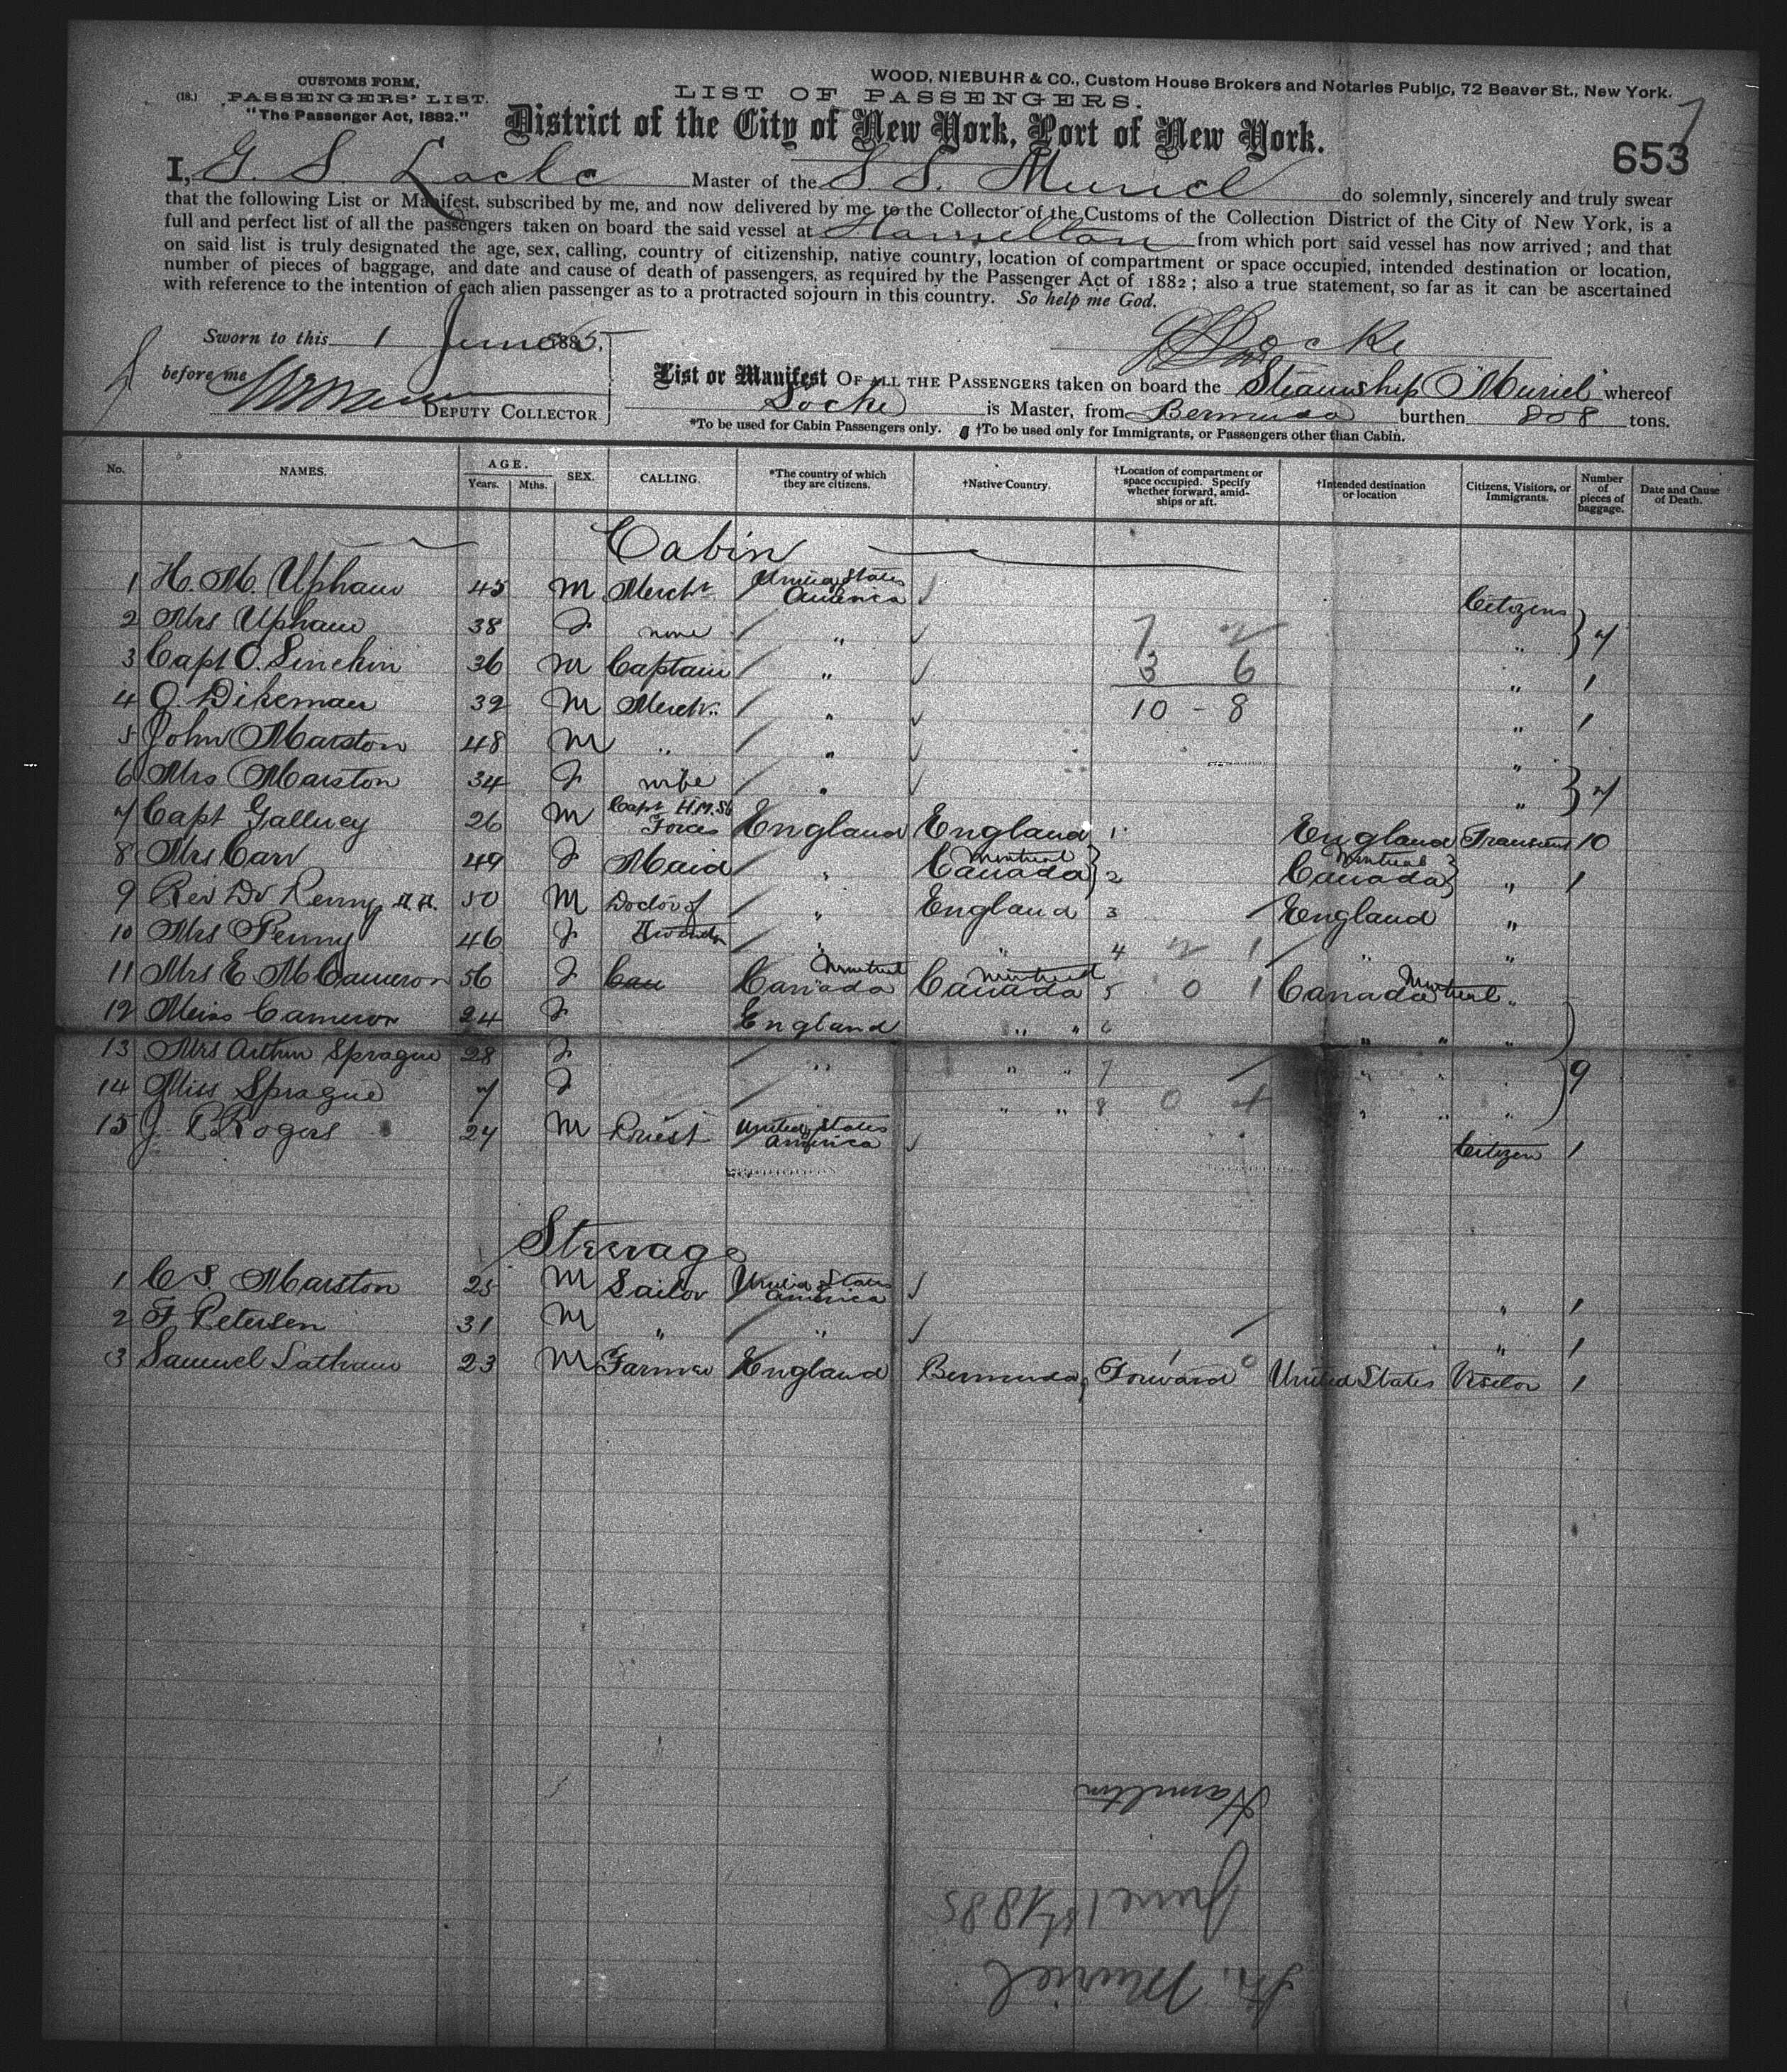 CUSTOMS FORM,
(18.) PASSENGERS' LIST.
"The Passenger Act, 1882."
WOOD, NIEBUHR & CO., Custom House Brokers and Notaries Public, 72 Beaver St., New York.
LIST OF PASSENGERS.
District of the City of New York, Port of New York.
653
I, G. S. Locke Master of the S. S. Muriel do solemnly, sincerely and truly swear
that the following List or Manifest, subscribed by me, and now delivered by me to the Collector of the Customs of the Collection District of the City of New York, is a
full and perfect list of all the passengers taken on board the said vessel at Hamilton from which port said vessel has now arrived; and that
on said list is truly designated the age, sex, calling, country of citizenship, native country, location of compartment or space occupied, intended destination or location,
number of pieces of baggage, and date and cause of death of passengers, as required by the Passenger Act of 1882; also a true statement, so far as it can be ascertained
with reference to the intention of each alien passenger as to a protracted sojourn in this country. So help me God.
Sworn to this 1 June 1885.
G S Locke
before me
DEPUTY COLLECTOR
List or Manifest OF ALL THE PASSENGERS taken on board the Steamship "Muriel" whereof
Locke is Master, from Bermuda burthen 808 tons.
*To be used for Cabin Passengers only. †To be used only for Immigrants, or Passengers other than Cabin.
No. NAMES. AGE. Years. Mths. SEX. CALLING. *The country of which they are citizens. †Native Country. †Location of compartment or space occupied. Specify whether forward, amidships or aft. †Intended destination or location Citizens, Visitors, or Immigrants. Number of pieces of baggage. Date and Cause of Death.
Cabin
1 H. M. Upham 45 M Merch't United States America Citizens
2 Mrs Upham 38 F none " " 7
3 Capt O. Sinckin 36 M Captain " 3 6 " 1
4 O. Dikeman 32 M Merch't " 10 - 8 " 1
5 John Marston 48 M " " "
6 Mrs Marston 34 F wife " " 7
7 Capt Gallwey 26 M Capt H.M. Forces England England 1 England Transient 10
8 Mrs Carr 49 F Maid " Montreal Canada 2 Montreal Canada " 1
9 Rev Dr Penny 50 M Doctor of " England 3 England "
10 Mrs Penny 46 F " " 4 " "
11 Mrs E M Cameron 56 F Montreal Canada Montreal Canada 5 0 1 Canada Montreal "
12 Miss Cameron 24 F England " " 6 " " "
13 Mrs Arthur Sprague 28 F " " " 7 " " " 9
14 Miss Sprague 7 F " " " 8 0 " " "
15 J. Rogers 24 M Priest United States America Citizen 1
Steerage
1 C S Marston 25 M Sailor United States America " 1
2 F Petersen 31 M " " " 1
3 Samuel Latham 23 M Farmer England Bermuda Forward United States Visitor 1
Hamilton
June 1st 1885
Str. Muriel